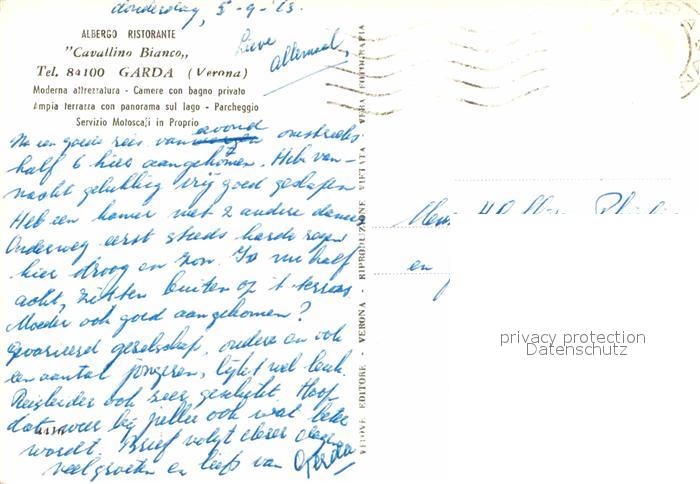 donderdag, 5-9-63.
ALBERGO RISTORANTE
"Cavallino Bianco,,
Tel. 84100 GARDA (Verona)
Moderna attrezzatura - Camere con bagno privato
Ampia terrazza con panorama sul lago - Parcheggio
Servizio Motoscafi in Proprio
Lieve
allemaal,
Na een goede reis van avond omstreeks
half 6 hier aangekomen. Heb van-
nacht gelukkig vrij goed geslapen
Heb een kamer met 2 andere dames
Onderweg eerst steeds harde regen
hier droog en zon. Is nu half
acht, zitten buiten op 't terras.
Moeder ook goed aangekomen?
Gevarieerd gezelschap, oudere en ook
een aantal jongeren, lijkt wel leuk.
Reisleider ook zeer geschikt. Hoop
dat weer bij jullie ook wat beter
wordt. Brief volgt dezer dagen
veel groeten en liefs van Gerda
4416
VEDOVE EDITORE - VERONA - RIPRODUZIONE VIETATA - VERA FOTOGRAFIA
en
privacy protection
Datenschutz